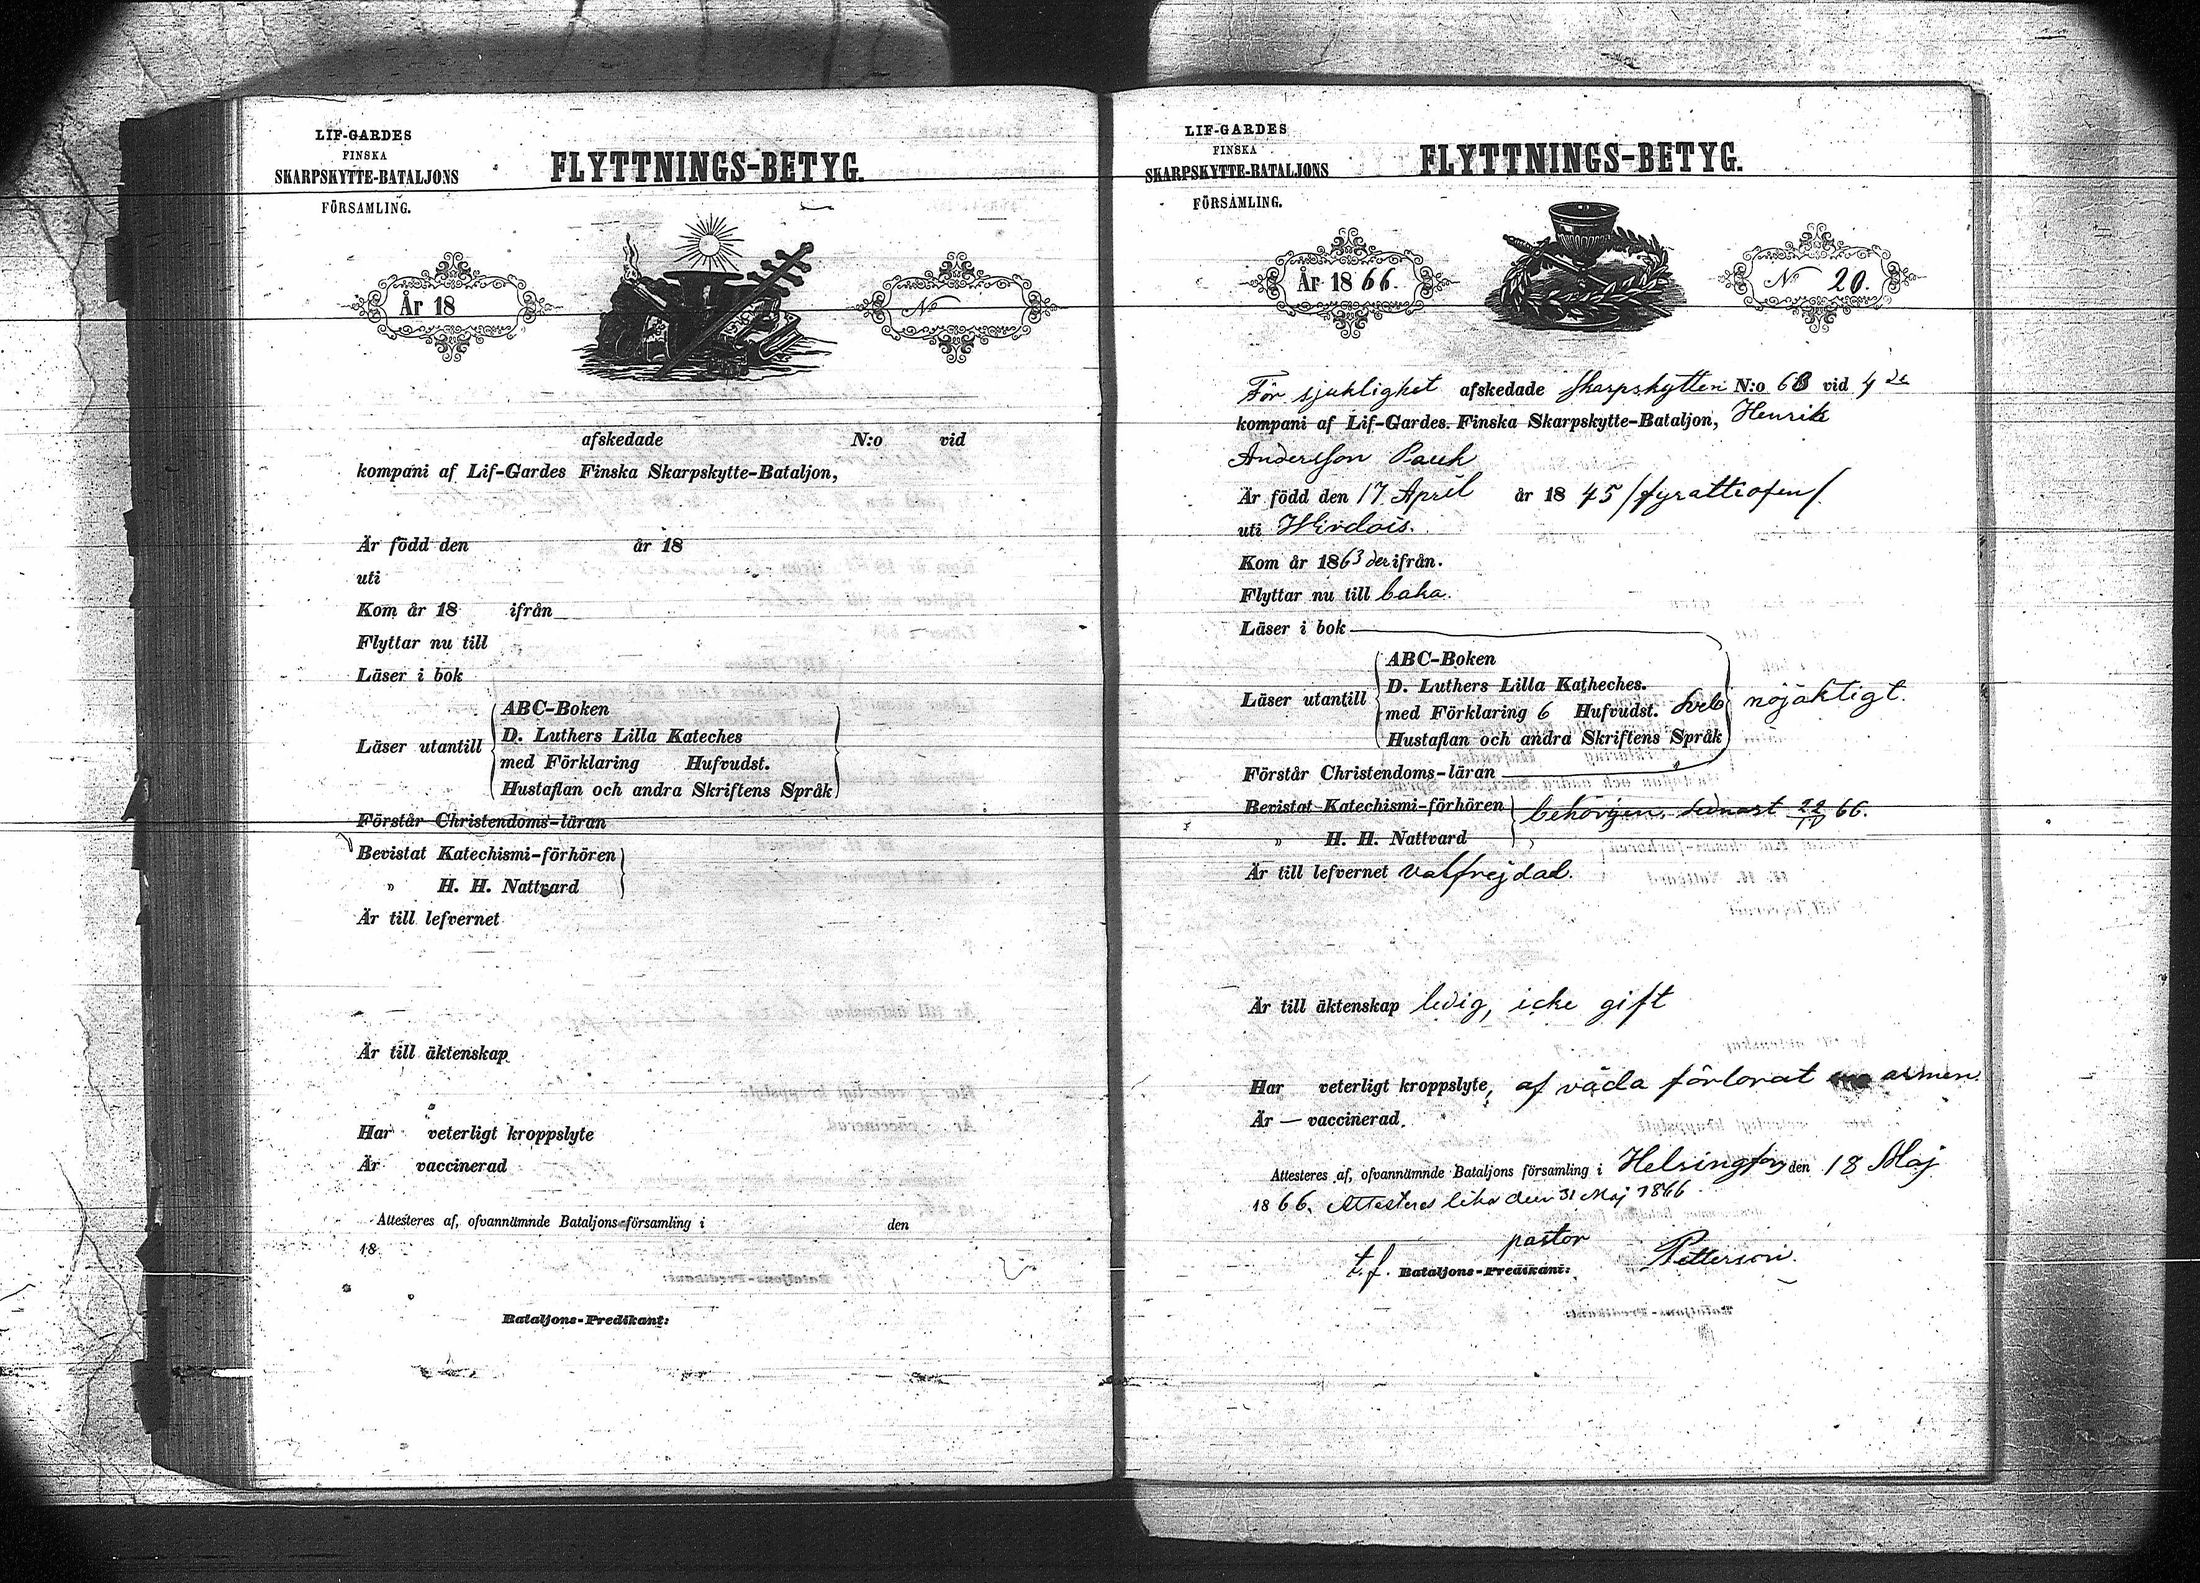 LIF-GARDES
FINSKA
SKARPSKYTTE-BATALJONS
FÖRSAMLING.
FLYTTNINGS-BETYG.
År 18
No
afskedade N:o vid
kompani af Lif-Gardes Finska Skarpskytte-Bataljon,
Är född den år 18
uti
Kom år 18 ifrån
Flyttar nu till
Läser i bok
Läser utantill
ABC-Boken
D. Luthers Lilla Kateches
med Förklaring Hufvudst.
Hustaflan och andra Skriftens Språk
Förstår Christendoms-läran
Bevistat Katechismi-förhören
" H. H. Nattvard
Är till lefvernet
Är till äktenskap
Har veterligt kroppslyte
Är vaccinerad
Attesteres af, ofvannämnde Bataljons församling i den
18
Bataljons-Predikant:
LIF-GARDES
FINSKA
SKARPSKYTTE-BATALJONS
FÖRSAMLING.
FLYTTNINGS-BETYG.
År 1866.
No 20.
För sjuklighet afskedade skarpskytten N:o 63 vid 4de
kompani af Lif-Gardes Finska Skarpskytte-Bataljon, Henrik
Andersson Pauk
Är född den 17 April år 1845 /fyrattiofem/
uti Wirdois.
Kom år 1863 derifrån.
Flyttar nu till baka.
Läser i bok
Läser utantill
ABC-Boken
D. Luthers Lilla Katheches.
med Förklaring 6 Hufvudst.
Hustaflan och andra Skriftens Språk
nöjaktigt.
Förstår Christendoms-läran
Bevistat Katechismi-förhören
" H. H. Nattvard
behörigen, senast 66.
Är till lefvernet välfrejdad.
Är till äktenskap ledig, icke gift
Har veterligt kroppslyte, af våda förlorat armen.
Är — vaccinerad.
Attesteres af, ofvannämnde Bataljons församling i Helsingfors den 18 Maj
1866. Attesteres lika den 31 Maj 1866.
pastor
t.f. Bataljons-Predikant: Petterson.